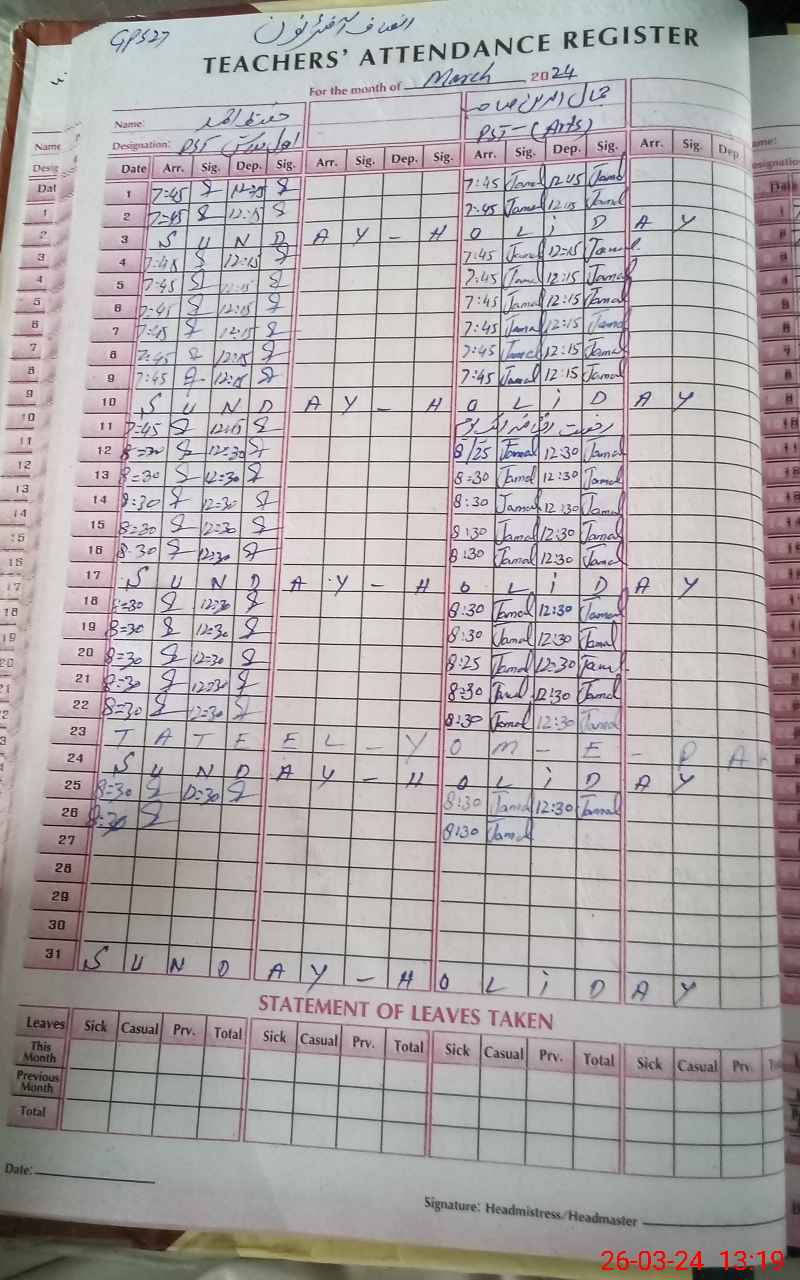 GPS27
TEACHERS' ATTENDANCE REGISTER
For the month of March 2024
Name:
Designation: PST PST-(Arts)
Date Arr. Sig. Dep. Sig. Arr. Sig. Dep. Sig. Arr. Sig. Dep. Sig. Arr. Sig. Dep.
1 7:45 12:15 7:45 Jamal 12:15 Jamal
2 7:45 12:15 7:45 Jamal 12:15 Jamal
3 S U N D A Y - H O L i D A Y
4 7:45 12:15 7:45 Jamal 12:15 Jamal
5 7:45 12:15 7:45 Jamal 12:15 Jamal
6 7:45 12:15 7:45 Jamal 12:15 Jamal
7 7:45 12:15 7:45 Jamal 12:15 Jamal
8 7:45 12:15 7:45 Jamal 12:15 Jamal
9 7:45 12:15 7:45 Jamal 12:15 Jamal
10 S U N D A Y - H O L i D A Y
11 7=45 12:15 رخصت
12 8=30 12=30 8/25 Jamal 12:30 Jamal
13 8=30 12=30 8=30 Jamal 12:30 Jamal
14 8:30 12=30 8:30 Jamal 12:30 Jamal
15 8=30 12=30 8:30 Jamal 12:30 Jamal
16 8:30 12=30 8:30 Jamal 12:30 Jamal
17 S U N D A Y - H O L i D A Y
18 8=30 12=30 8:30 Jamal 12:30 Jamal
19 8=30 12=30 8:30 Jamal 12:30 Jamal
20 8=30 12=30 8:25 Jamal 12=30 Jamal
21 8=30 12=30 8=30 Jamal 12:30 Jamal
22 8=30 12=30 8:30 Jamal 12:30 Jamal
23 T A T E E L - Y O M - E - P A
24 S U N D A Y - H O L i D A Y
25 8=30 12=30 8:30 Jamal 12:30 Jamal
26 8=30 8:30 Jamal
27
28
29
30
31 S U N D A Y - H O L i D A Y
STATEMENT OF LEAVES TAKEN
Leaves Sick Casual Prv. Total Sick Casual Prv. Total Sick Casual Prv. Total Sick Casual Prv.
This Month
Previous Month
Total
Date:
Signature: Headmistress/Headmaster
26-03-24 13:19